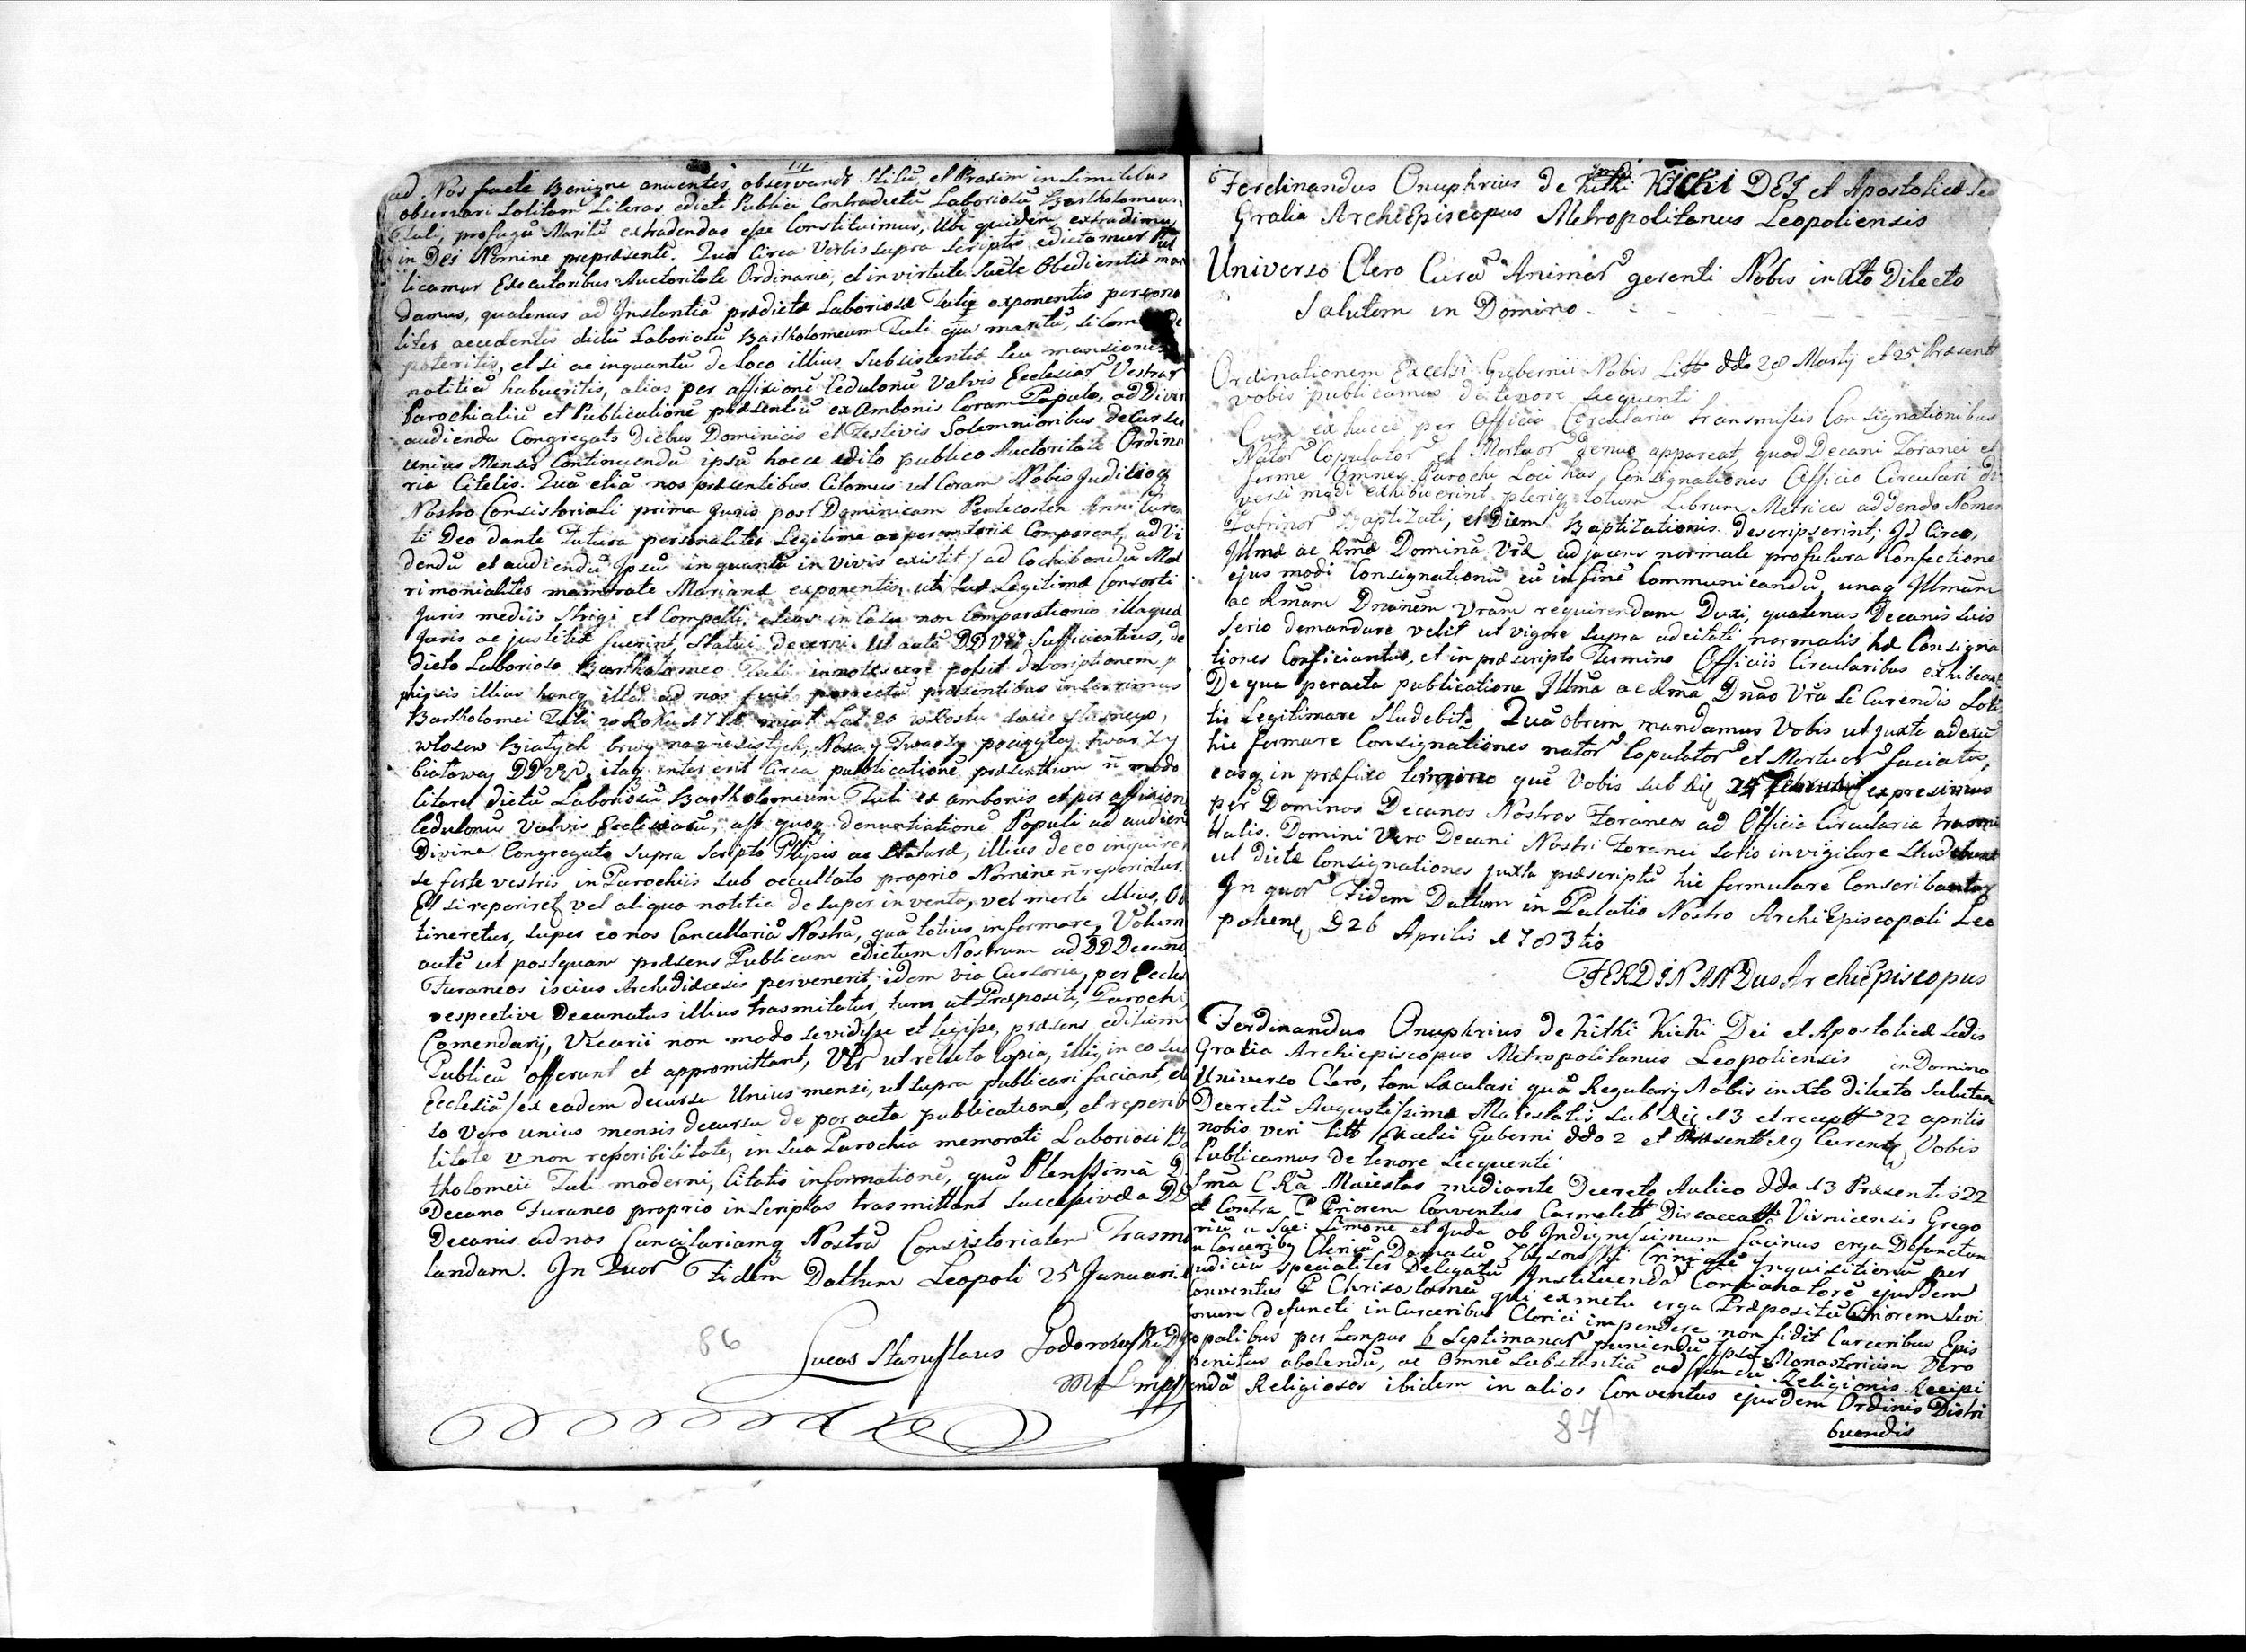 ad Nos facte Benigne anuentes, observando Stilũ, et Praxim in similibus
observari solitam Literas edicti Publici Contra dictũ Laboriosũ Bartholomeum
Tuli, profugũ Maritũ extradendas esse Constituimus, Ubi quidem extradimus
in Dei Nomine prepræsente. Qua Circa Verbis supra scriptis edictamur
licamur Executoribus Auctoritate Ordinaria, et in virtute Sactæ Obedientiæ man
damus, quatenus ad Instantiã prædictæ Laboriosæ Tuliæ exponentis persona
liter accedentes dictũ Laboriosũ Bartholomeum Tuli ejus maritũ, si
poteritis, et si ac inquantũ de loco illius subsistentiæ seu mansionis
notitiã habueritis, alias per affixionẽ Cedulonũ Valvis Ecclesiar Vestrar
Parochialiũ et Publicationẽ præsentiũ ex Ambonis Coram Populo, ad Divin
audienda Congregato Diebus Dominicis et Festivis Solemnioribus decursu
unius Mensis Continuendũ ipsũ hocce edito publico Auctoritate Ordina
ria Citetis. Quã etiã nos præsentibus Citamus ut Coram Nobis Judicioq
Nostro Consistoriali prima Juris post Dominicam Pentecosten Anni Curen
ti Deo dante futura personaliter Legitime ac peremtorie Compareat, ad Vi
dendũ et audiendũ Ipsũ inquantũ in vivis existit / ad Cohibendũ Mat
rimonialiter memorate Marianæ exponentis, uti suæ Legitimæ Consorti
Juris mediis Strigi et Compelli, alias in Casu non Comparationis illaquæ
Juris ac justitiæ fuerint, Statui decerni. Ut autẽ DDVræ Sufficientius, de
dicto Laborioso Bartholomeo Tuli innotescere possit descriptionem p
phisis illius hancq illã ad nos fuit porrectũ præsentibus inserimus
Bartholomei Tuli w Roku 17 miał Lat 20 wRostu
włosow Białych brwy nawiesistych, Nosa y Twarzy pociągłey twarzy
białawey DDVræ. itaq intererit Circa publicationẽ præsentium ñ modo
Citare dictũ Laboriosũ Bartholomeum Tuli ex ambonis et per affixion
Cedulonũ Valvis Ecclesiarũ, ast quoq denuntiationẽ Populi ad audien
Divina Congregato supra scripto Phisis ac Staturæ, illius de eo inquirer
se forte vestris in Parochiis sub occultato proprio Nomine ñ reperiatur.
Et si reperiret vel aliqua notitia desuper inventa, vel morte illius, Ob
tineretur, super eo nos Cancellariã Nostrã, quã totius informare, Volum
autẽ ut postquam præsens Publicum edictum Nostrum ad DD Decano
Furaneos iscius Archidiæcesis pervenerit, idem via Cursoria, per Eccles
respective Decanatus illius trasmitatur, tum ut Præpositi, Paroch
Comendarij, Vicarii non modo se vidisse et legisse, præsens edictum
Publicũ afferunt et appromittant, Ver ut relicta Copia, illiq in eo su
Ecclesiã / ex eadem decursu Unius mensi, ut supra publicari faciant, et
so Vero unius mensis decursu de peracta publicatione, et reperib
litate v non reperibilitate, in sua Parochia memorati Laboriosi Ba
tholomeii Tuli moderni, Citatis informationẽ, quã Plenssimã D
Decano Furaneo proprio in scriptas trasmittant successive a DD
Decanis ad nos Cancilariamq Nostrã Consistorialem Trasmi
tandam. In Quor Fidem Dattum Leopoli 25 Januari
86
Lucas Stanislaus Todorowski
mp
Ferdinandus Onuphrius de Kitki Kicki DEI et Apostolicæ Sed
Gratia ArchiEpiscopus Metropolitanus Leopoliensis
Universo Clero Curã Animar gerenti Nobis in Xto Dilecto
Salutem in Domino
Ordinationem Excelsi Gubernii Nobis Litt ddo 28 Martij et 25 Præsent
vobis publicamus de tenore sequenti
Cum ex hucce per Officia Circularia transmissis Consignationibus
Nator Copulator et Mortuor denuo appareat, quod Decani Foranei et
ferme Omnes Parochi Loci has Consignationes Officio Circulari di
versi modi exhibuerint plerig totum Librum Metrices addendo Nomen
Patrinor Baptizati, et Diem Baptizationis descripserint; Id Circo,
Illmæ ac Rmæ Dominã Vræ adjacens normale pro futura Confectione
ejus modi Consignationũ eũ in finẽ Communicandũ, unaq Illmãm
ac Rmãm Dnãnem Vrãm requirendam Duxi, quatenus Decanis suis
Serio demandare velit ut vigore supra adcitati normalis hæ Consigna
tiones Conficiantur, et in præscripto Termino Officiis Circularibus exhibeant
De qua peracta publicatione Illmã ac Rmã Dnão Vrã se Curendis Loti
tis Legitimare studebit, Quã obrem mandamus Vobis ut juxta adexũ
hic formare Consignationes nator Copulator et Mortuor faciatis,
easq in præfixo termino quẽ Vobis sub die 24 Februarij expressimus
per Dominos Decanos Nostros Foraneos ad Officia Circularia trasmi
ttatis. Domini Vero Decani Nostri Foranei serio invigilare studebunt
ut dictæ Consignationes juxta præscriptũ hic formulare Conscribantur
In quor Fidem Dattum in Palatio Nostro ArchiEpiscopali Leo
poliens D 26 Aprilis 1783tio
FERDINANDus ArchiEpiscopus
Ferdinandus Onuphrius de Kitki Kicki Dei et Apostolicæ Sedis
Gratia Archiepiscopus Metropolitanus Leopoliensis in Domino
Universo Clero, tam Sæculari quã Regulari Nobis in Xto dilecto Salutem
Decretũ Augustissimæ Maiestatis sub die 13 et recept 22 aprilis
nobis veri litt Excelsi Guberni ddo 2 et Præsentt 19 Curents Vobis
Publicamus de tenore seequenti
Smã C Rã Maiestas mediante Decreto Aulico ddo 13 Præsentis 22
et Contra P Priorem Conventus Carmelitt Discaceatt Visnicensis Grego
riũ a Sac: Simone et Juda ob Indignissimum facinus erga Defunctum
in Carceribq Clericũ Damasũ Criminalẽ Inquisitionũ per
Judiciũ specialiter Delegatũ Instituendã Concianatorẽ ejusdem
Conventus P Chrisostomũ qui ex metu erga Præpositũ Priorem Sevi
onum defuncti in Carceribus Clerici impendere non fidit Carceribus Epis
copalibus per tempus 6 Septimanar puniendũ Ipsũ Monasterium Vero
penitus abolendũ, ac Omnẽ Substantiã ad fundũ Religionis Recipi
endã Religiosos ibidem in alios Conventus ejusdem Ordinis Distri
buendis
87